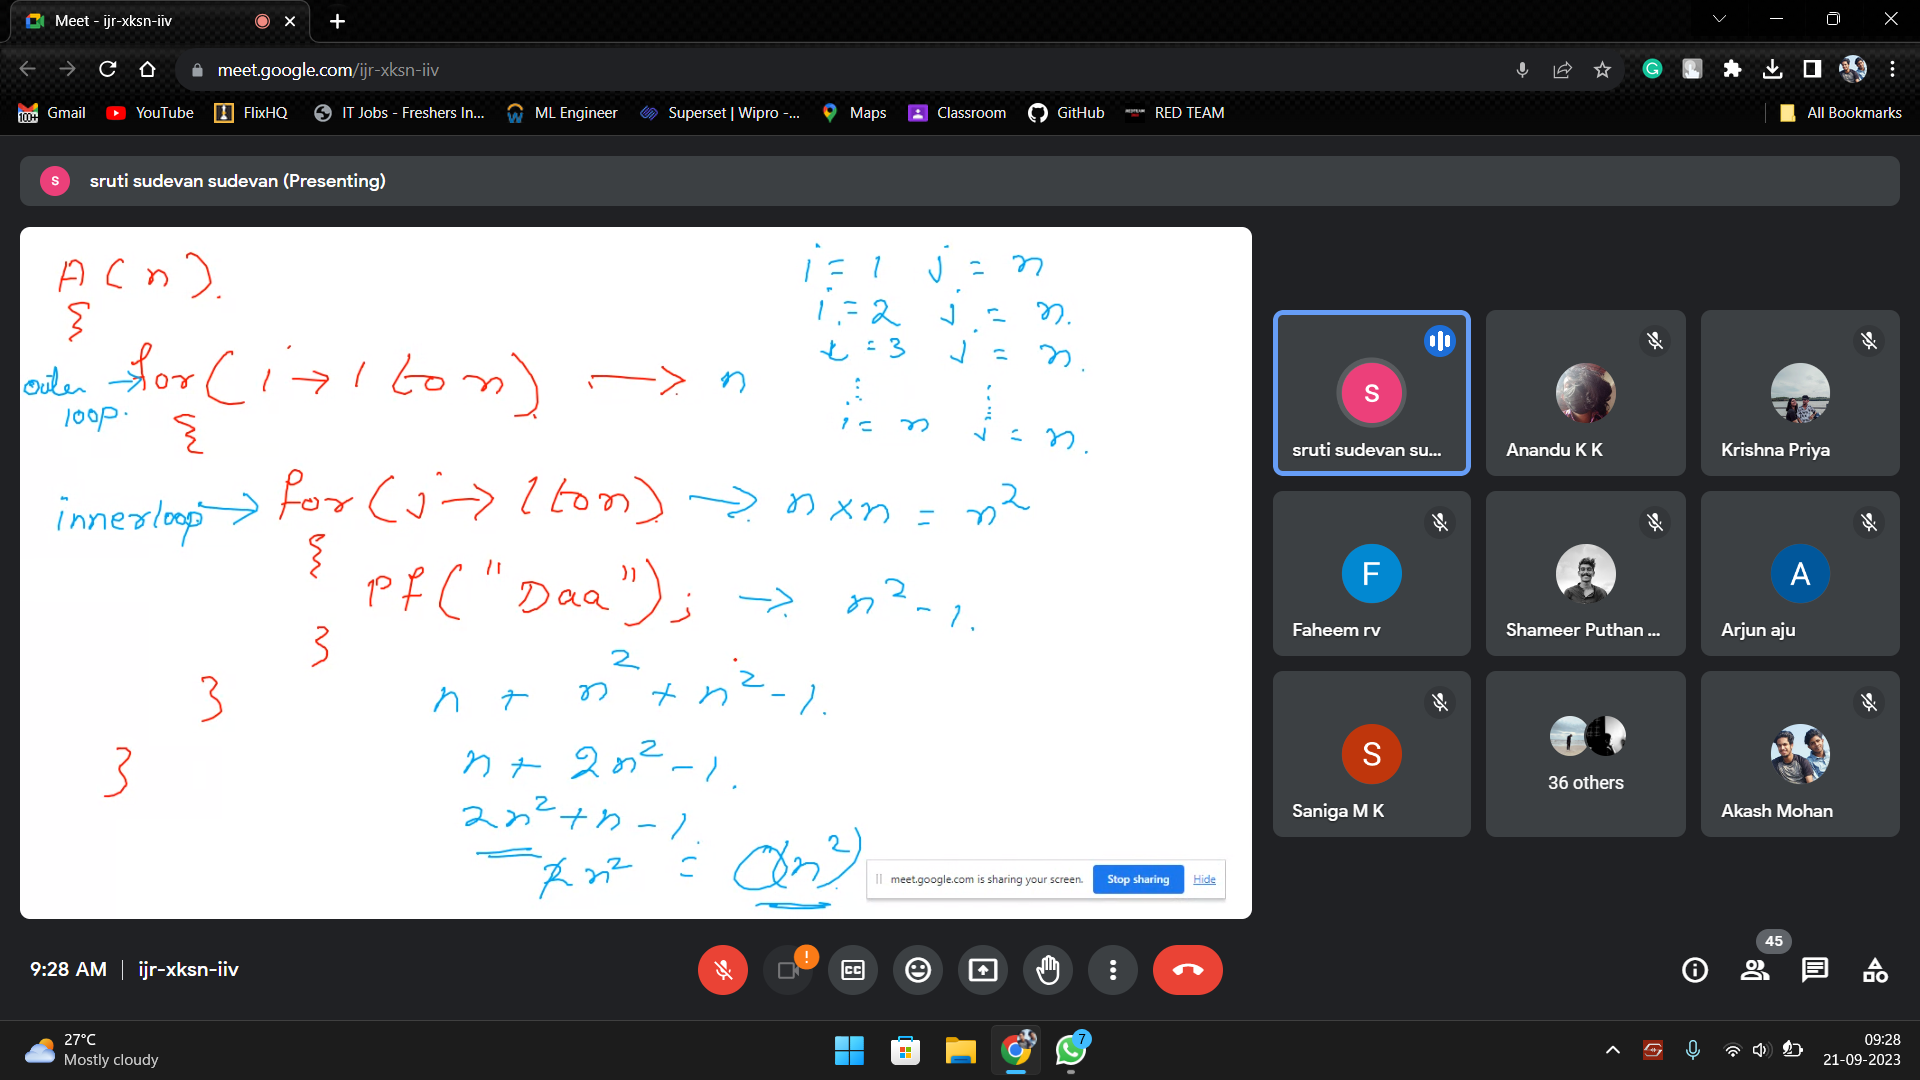 Meet - ijr-xksn-iiv
meet.google.com/ijr-xksn-iiv
Gmail YouTube FlixHQ IT Jobs - Freshers In... ML Engineer Superset | Wipro -... Maps Classroom GitHub RED TEAM All Bookmarks
S sruti sudevan sudevan (Presenting)
A(n).
{
outer loop. → for(i → 1 to n) → n
{
innerloop → for(j → 1 to n) → n × n = n²
{
Pf("Daa"); → n² - 1.
}
}
}
i = 1 j = n
i = 2 j = n.
i = 3 j = n.
i = n j = n.
n + n² + n² - 1.
n + 2n² - 1.
2n² + n - 1.
2n² = O(n²)
meet.google.com is sharing your screen. Stop sharing Hide
S sruti sudevan su...
Anandu K K
Krishna Priya
F Faheem rv
Shameer Puthan ...
A Arjun aju
S Saniga M K
36 others
Akash Mohan
9:28 AM | ijr-xksn-iiv
CC
45
27°C
Mostly cloudy
7
09:28
21-09-2023